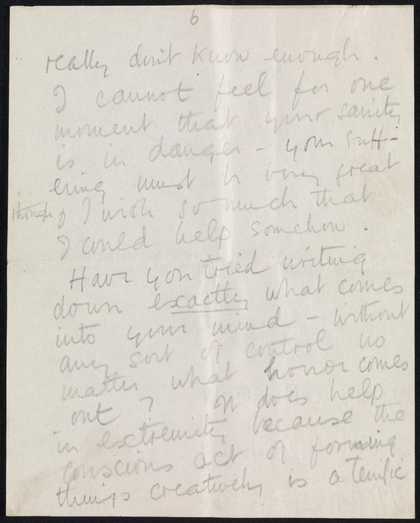 6
really don't know enough.
I cannot feel for one
moment that your sanity
is in danger – your suff-
ering must be very great
though & I wish so much that
I could help somehow.
Have you tried writing
down exactly what comes
into your mind – without
any sort of control no
matter what horror comes
out? It does help
in extremity because the
conscious act of forming
things creatively is a terrific